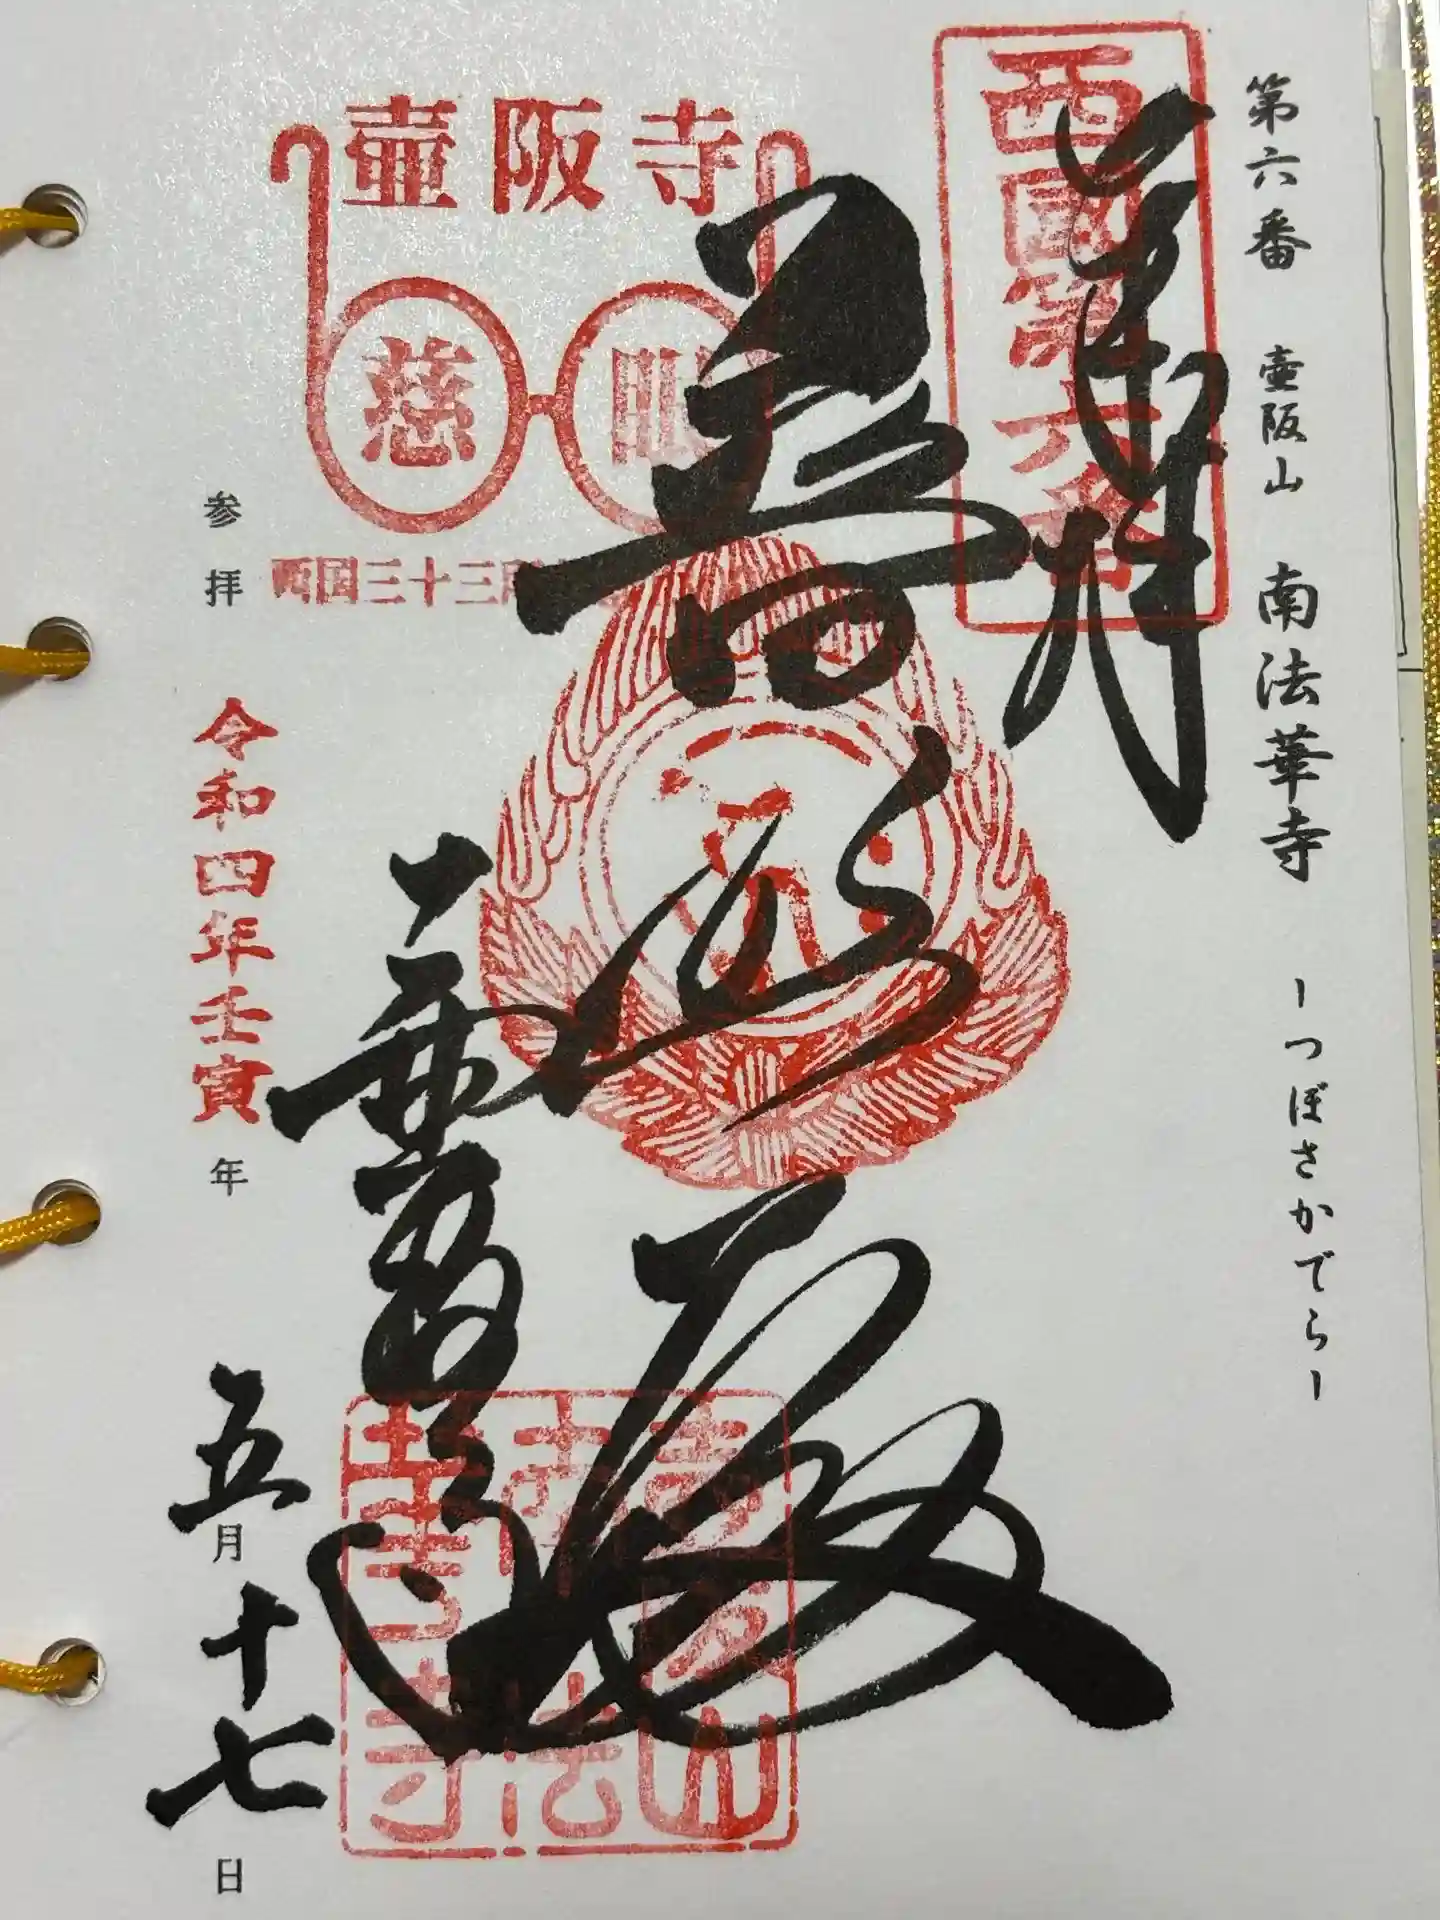 第六番 壺阪山 南法華寺 ーつぼさかでらー
西國第六番
奉拝
普照殿
壷阪寺
慈眼
西国三十三
壺阪山
南法
華寺
参拝 令和四年壬寅年 五月十七日